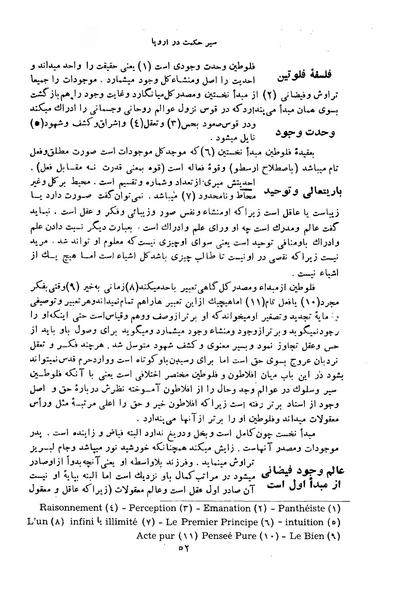 سیر حکمت در اروپا
فلوطین وحدت وجودی است (۱) یعنی حقیقت را واحد میداند و
فلسفهٔ فلوتین
احدیت را اصل و منشاء کل وجود میشمارد . موجودات را جمیعاً
تراوش و فیضانی (۲) از مبدأ نخستین و مصدر کل میانگارد و غایت وجود را هم بازگشت
بسوی همان مبدأ می‌پندارد که در قوس نزول عوالم روحانی و جسمانی را ادراک میکند
وحدت وجود
و در قوس صعود بحس (۳) و تعقل (۴) و اشراق و کشف و شهود (۵)
نایل میشود .
بعقیدهٔ فلوطین مبدأ نخستین (۶) که موجد کل موجودات است صورت مطلق و فعل
تام میباشد (باصطلاح ارسطو) و قوهٔ فعاله است (قوه بمعنی قدرت نه مقابل فعل) .
باریتعالی و توحید
احدیتش مبری از تعداد و شماره و تقسیم است . محیط بر کل و غیر
محاط و نامحدود (۷) میباشد . نمی‌توان گفت صورت دارد یا
زیباست یا عاقل است زیرا که او منشاء و نفس صور و زیبائی و فکر و عقل است . نباید
گفت عالم و مدرک است چه او ورای علم و ادراک است . بعبارت دیگر نسبت دادن علم
و ادراک باو منافی توحید است یعنی سوای او چیزی نیست که معلوم او تواند شد . مرید
نیست زیرا که نقصی در او نیست تا طالب چیزی باشد کل اشیاء است اما هیچ یک از
اشیاء نیست .
فلوطین از مبداء و مصدر کل گاهی تعبیر باحد میکند (۸) زمانی به خیر (۹) وقتی بفکر
مجرد (۱۰) یا فعل تام (۱۱) اما هیچیک از این تعبیر ها را هم تمام نمیداند و هر تعبیر و توصیفی
را مایهٔ تحدید و تصغیر او میخواند که او برتر از وصف و وهم و قیاس است حتی اینکه او را
وجود نمیگوید و برتر از وجود و منشاء وجود میشمارد و میگوید برای وصول باو باید از
حس و عقل تجاوز نمود و بسیر معنوی و کشف شهود متوسل شد . هر چند فکر و تعقل
نردبان عروج بسوی حق است اما برای رسیدن باو کوتاه است و وارد حرم قدس نمیتواند
بشود در این باب میان افلاطون و فلوطین مختصر اختلافی است یعنی با آنکه فلوطین
سیر و سلوک در عوالم وجد و حال را از افلاطون آموخته نظرش دربارهٔ حق و اصل
وجود از استاد برتر رفته است زیرا که افلاطون خیر و حق را اعلی مرتبهٔ مثل و رأس
معقولات میداند و فلوطین او را برتر از آنها می‌پندارد .
مبدأ نخست چون کامل است و بخل و دریغ ندارد البته فیاض و زاینده است . پدر
موجودات و مصدر آنهاست . زایش میکند همچنانکه خورشید نور میپاشد و جام لبریز
تراوش مینماید . و فرزند بلاواسطه او یعنی آنچه بدواً از او صادر
عالم وجود فیضانی
میشود در مراتب کمال باو نزدیک است اما البته بپایهٔ او نیست
از مبدأ اول است
آن صادر اول عقل است و عالم معقولات (زیرا که عاقل و معقول
Raisonnement (۴) - Perception (۳) - Emanation (۲) - Panthéiste (۱)
L'un (۸) infini یا illimité (۷) - Le Premier Principe (۶) - intuition (۵)
Acte pur (۱۱) Penseé Pure (۱۰) - Le Bien (۹)
۵۲